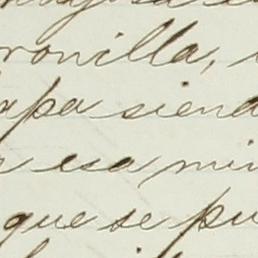 ronilla,
apa siend
esa min
que se pu